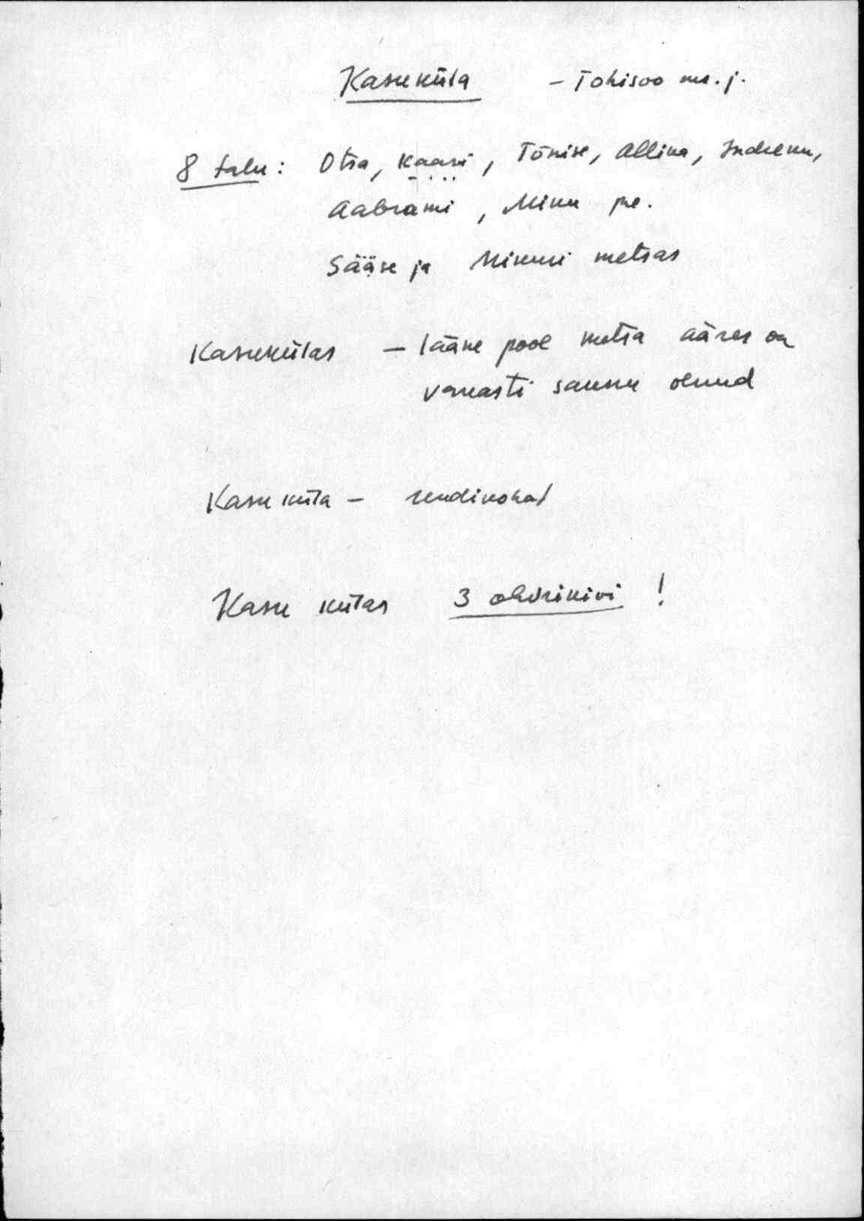 Kaseküla – Tohisoo ms. j.
8 talu: Otsa, Kaasi, Tõnise, Allika, Indreku,
Aabrami, Minu
Sääse ja metsas
Kasekülas – lääne pool metsa ääres on
vanasti saunu olnud
Kase küla – rendikohad
Kase külas 3 ohvrikivi !